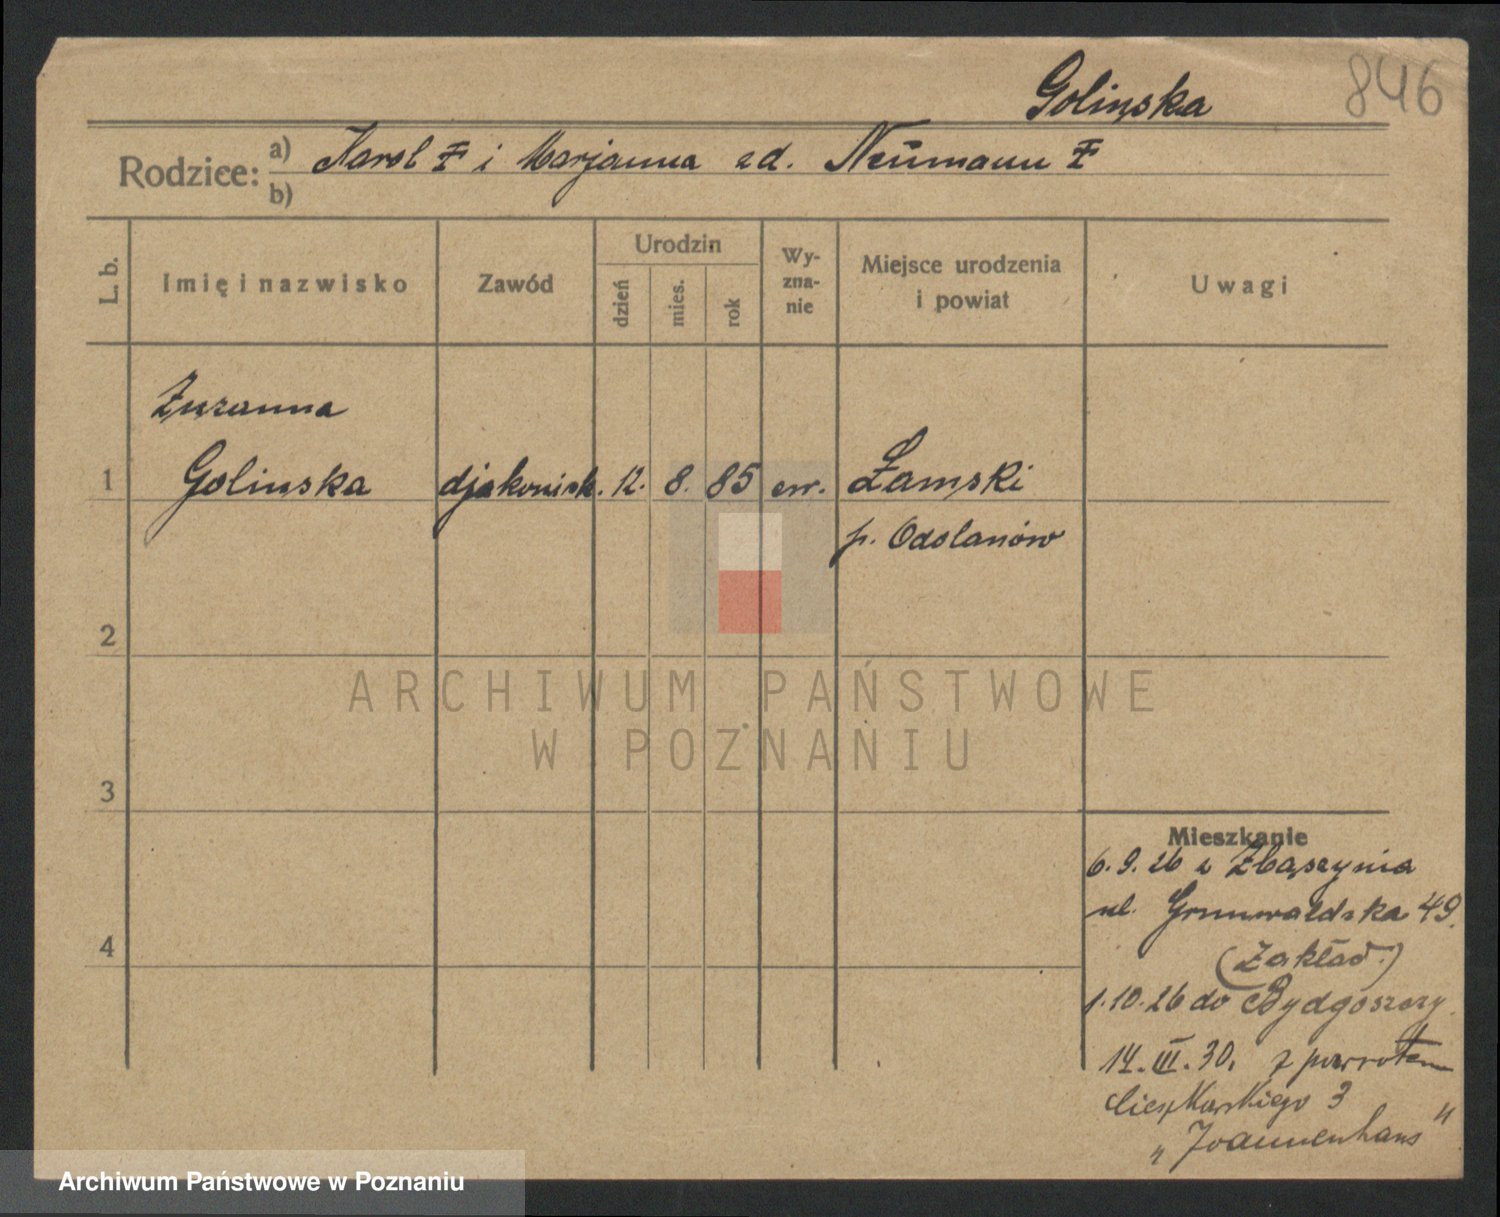 Golinska
846
Rodzice: a) Karol ‡ i Marjanna zd. Neumann ‡
b)
L. b.
Imię i nazwisko
Zawód
Urodzin
dzień
mies.
rok
Wy-
zna-
nie
Miejsce urodzenia
i powiat
Uwagi
Zuzanna
1 Golinska djakonisk. 12. 8. 85 ew. Łamski
p. Odolanów
2
ARCHIWUM PAŃSTWOWE
W POZNANIU
3
Mieszkanie
6.9.26 z Zbąszynia
ul. Grunwaldzka 49.
4
(Zakład.)
1.10.26 do Bydgoszczy
14.III.30. z powrotem
3
„Joannenhaus"
Archiwum Państwowe w Poznaniu